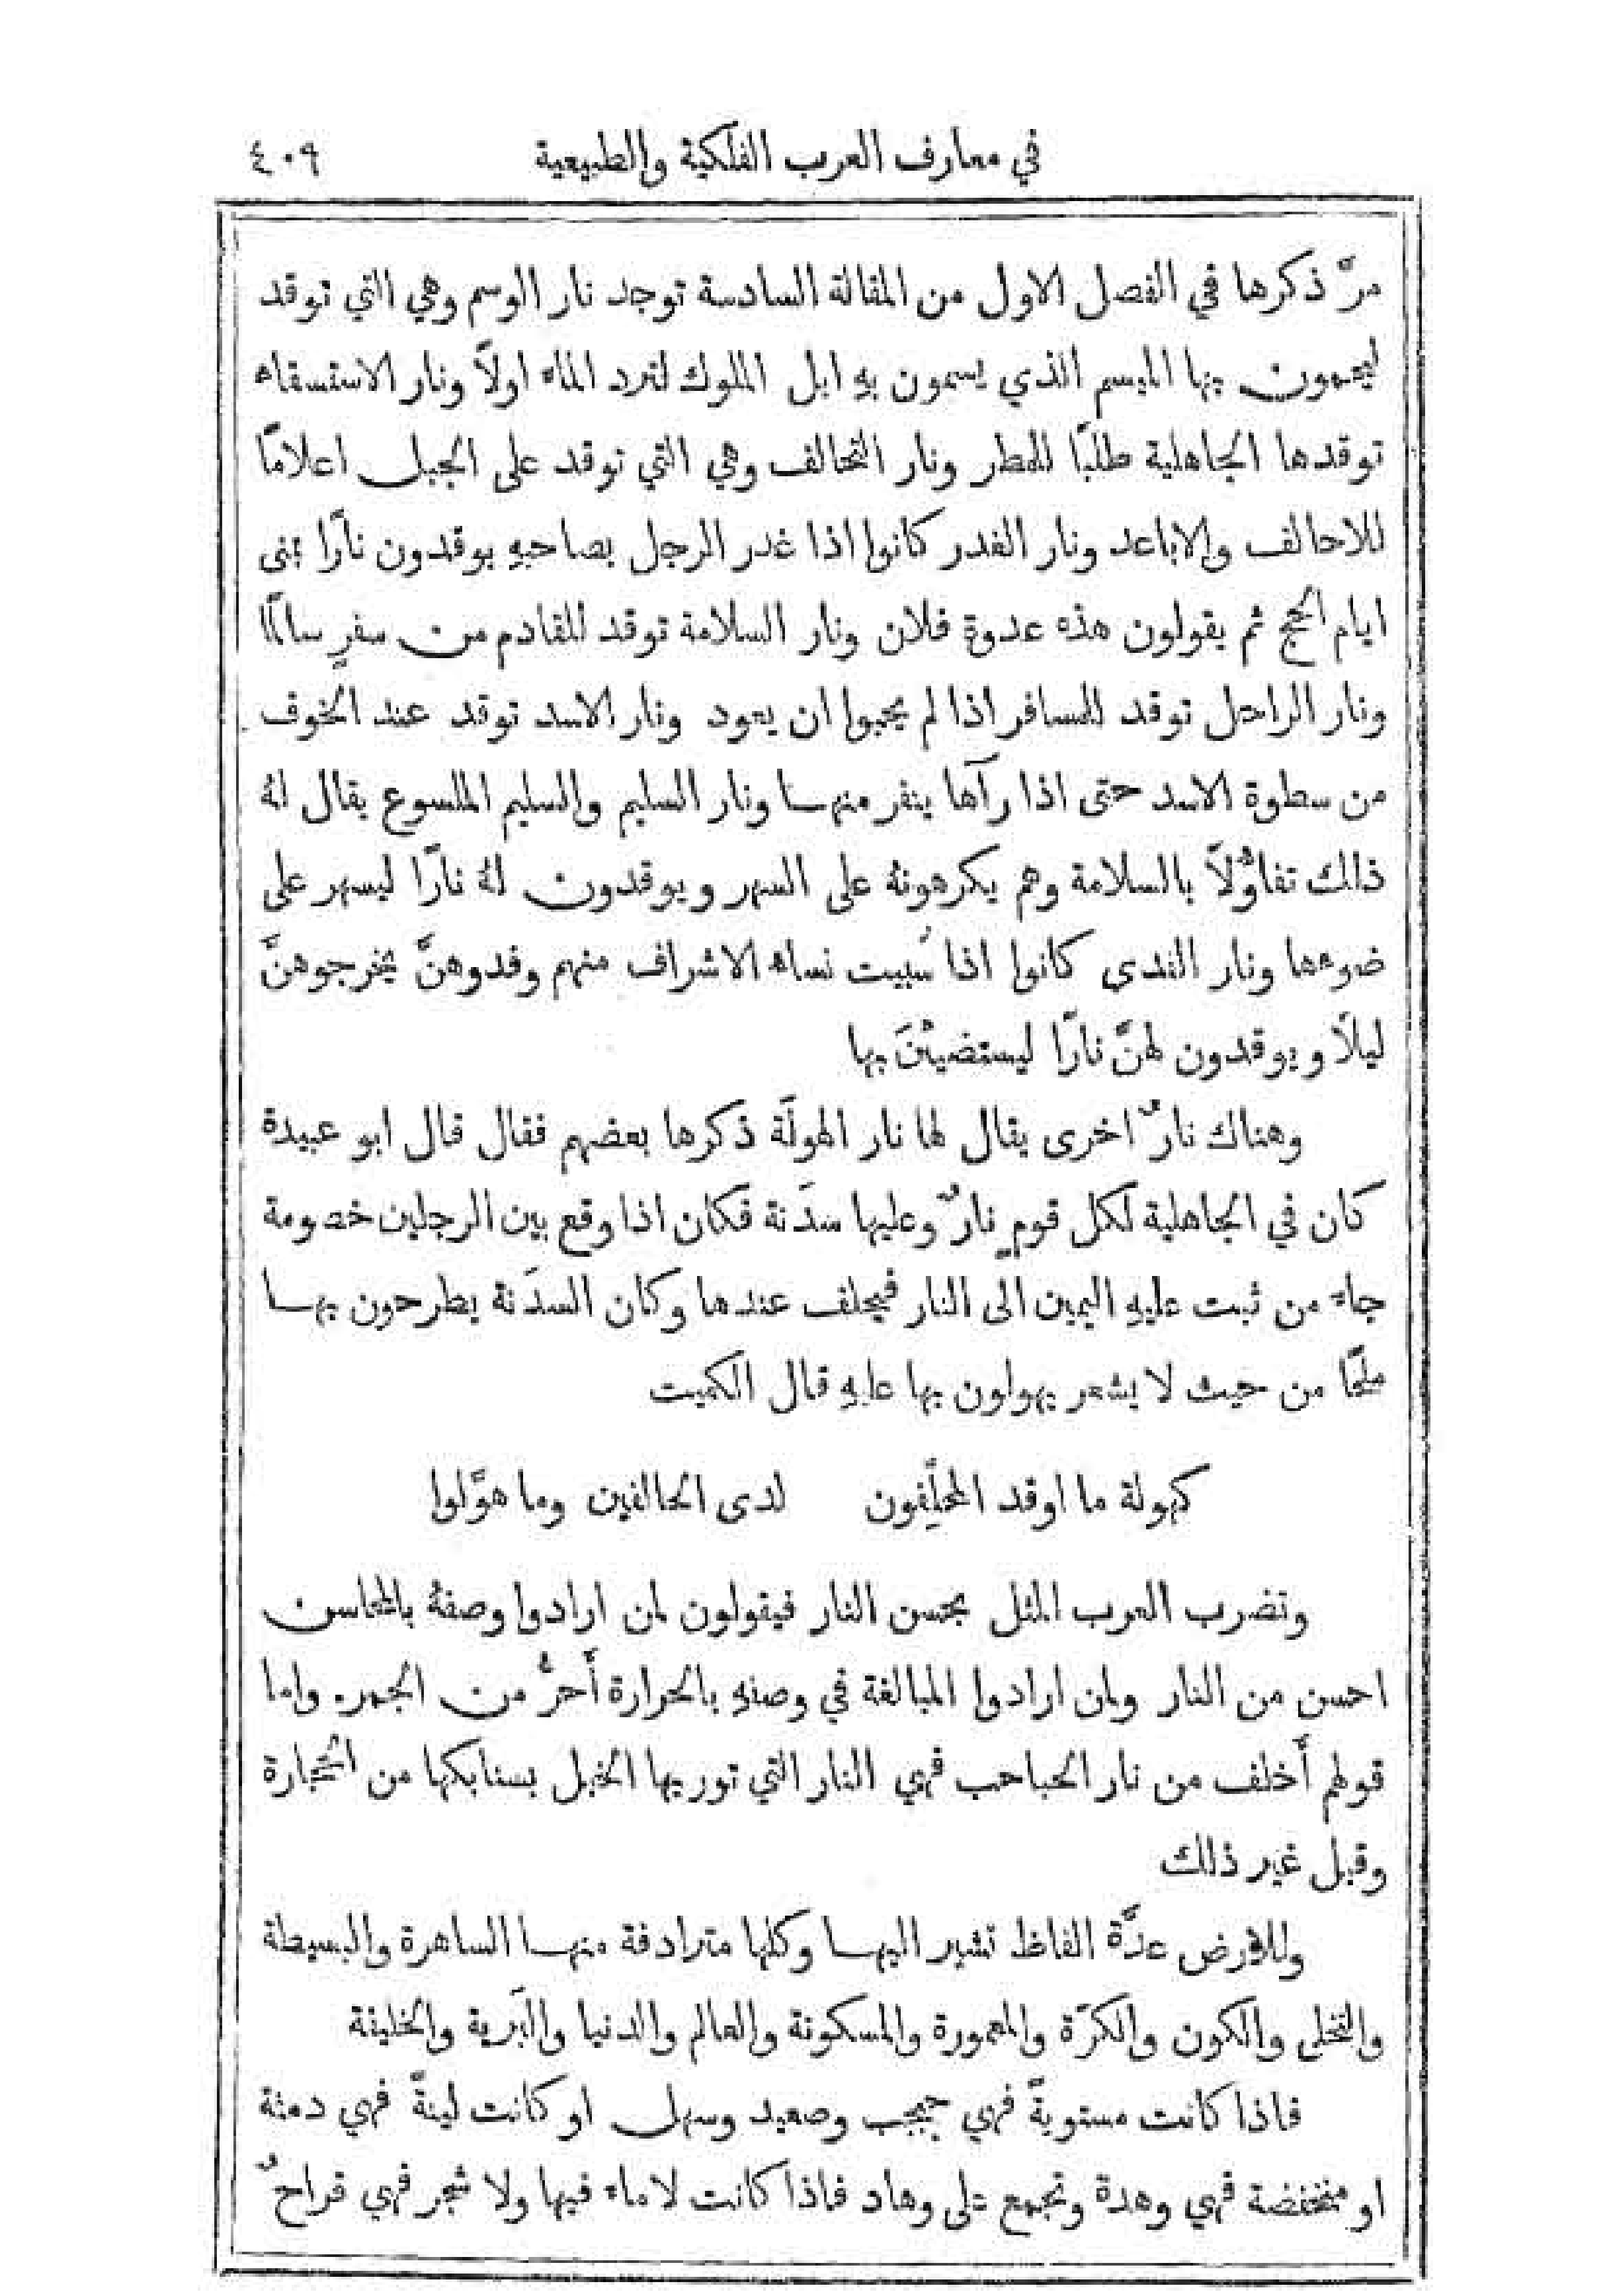 في معارف العرب الفلكية والطبيعية ٤٠٩
مرَّ ذكرها في الفصل الاول من المقالة السادسة توجد نار الوسم وهي التي توقد
ليحمون بها الميسم الذي يسمون بهِ ابل الملوك لترد الماء اولاً ونار الاستسقاء
توقدها الجاهلية طلبًا للمطر ونار التحالف وهي التي توقد على الجبل اعلامًا
للاحالف والاباعد ونار الغدر كانوا اذا غدر الرجل بصاحبهِ يوقدون نارًا بمنى
ايام الحج ثم يقولون هذه غدرة فلان ونار السلامة توقد للقادم من سفرٍ سالمًا
ونار الراحل توقد للمسافر اذا لم يحبوا ان يعود ونار الاسد توقد عند الخوف
من سطوة الاسد حتى اذا رآها ينفر منها ونار السليم والسليم الملسوع يقال لهُ
ذلك تفاؤُلاً بالسلامة وهم يكرهونهُ على السهر ويوقدون لهُ نارًا ليسهر على
ضوءها ونار الفدى كانوا اذا سُبيت نساء الاشراف منهم وفدوهنَّ يخرجوهنَّ
ليلاً ويوقدون لهنَّ نارًا ليستضيئْنَ بها
وهناك نارٌ اخرى يقال لها نار الهولَة ذكرها بعضهم فقال قال ابو عبيدة
كان في الجاهلية لكل قومٍ نارٌ وعليها سدَنة فكان اذا وقع بين الرجلين خصومة
جاء من ثبت عليهِ اليمين الى النار فيحلف عندها وكان السدَنة يطرحون بها
ملحًا من حيث لا يشعر يهولون بها عليهِ قال الكميت
كهولة ما اوقد المحلّفون لدى الحالفين وما هوَّلوا
وتضرب العرب المثل بحسن النار فيقولون لمن ارادوا وصفهُ بالمحاسن
احسن من النار ولمن ارادوا المبالغة في وصفهِ بالحرارة أَحرُّ من الجمر. واما
قولهم أَخلف من نار الحباحب فهي النار التي توريها الخيل بسنابكها من الحجارة
وقيل غير ذلك
وللارض عدَّة الفاظ تشير اليها وكلها مترادفة منها الساهرة والبسيطة
والكون والكرَة والمعمورة والمسكونة والعالم والدنيا والبَرية والخليقة
فاذا كانت مستويةً فهي وصعيد وسهل او كانت لينةً فهي دمثة
او منخفضة فهي وهدة وتجمع على وهاد فاذا كانت لا ماء فيها ولا شجر فهي قراحٌ